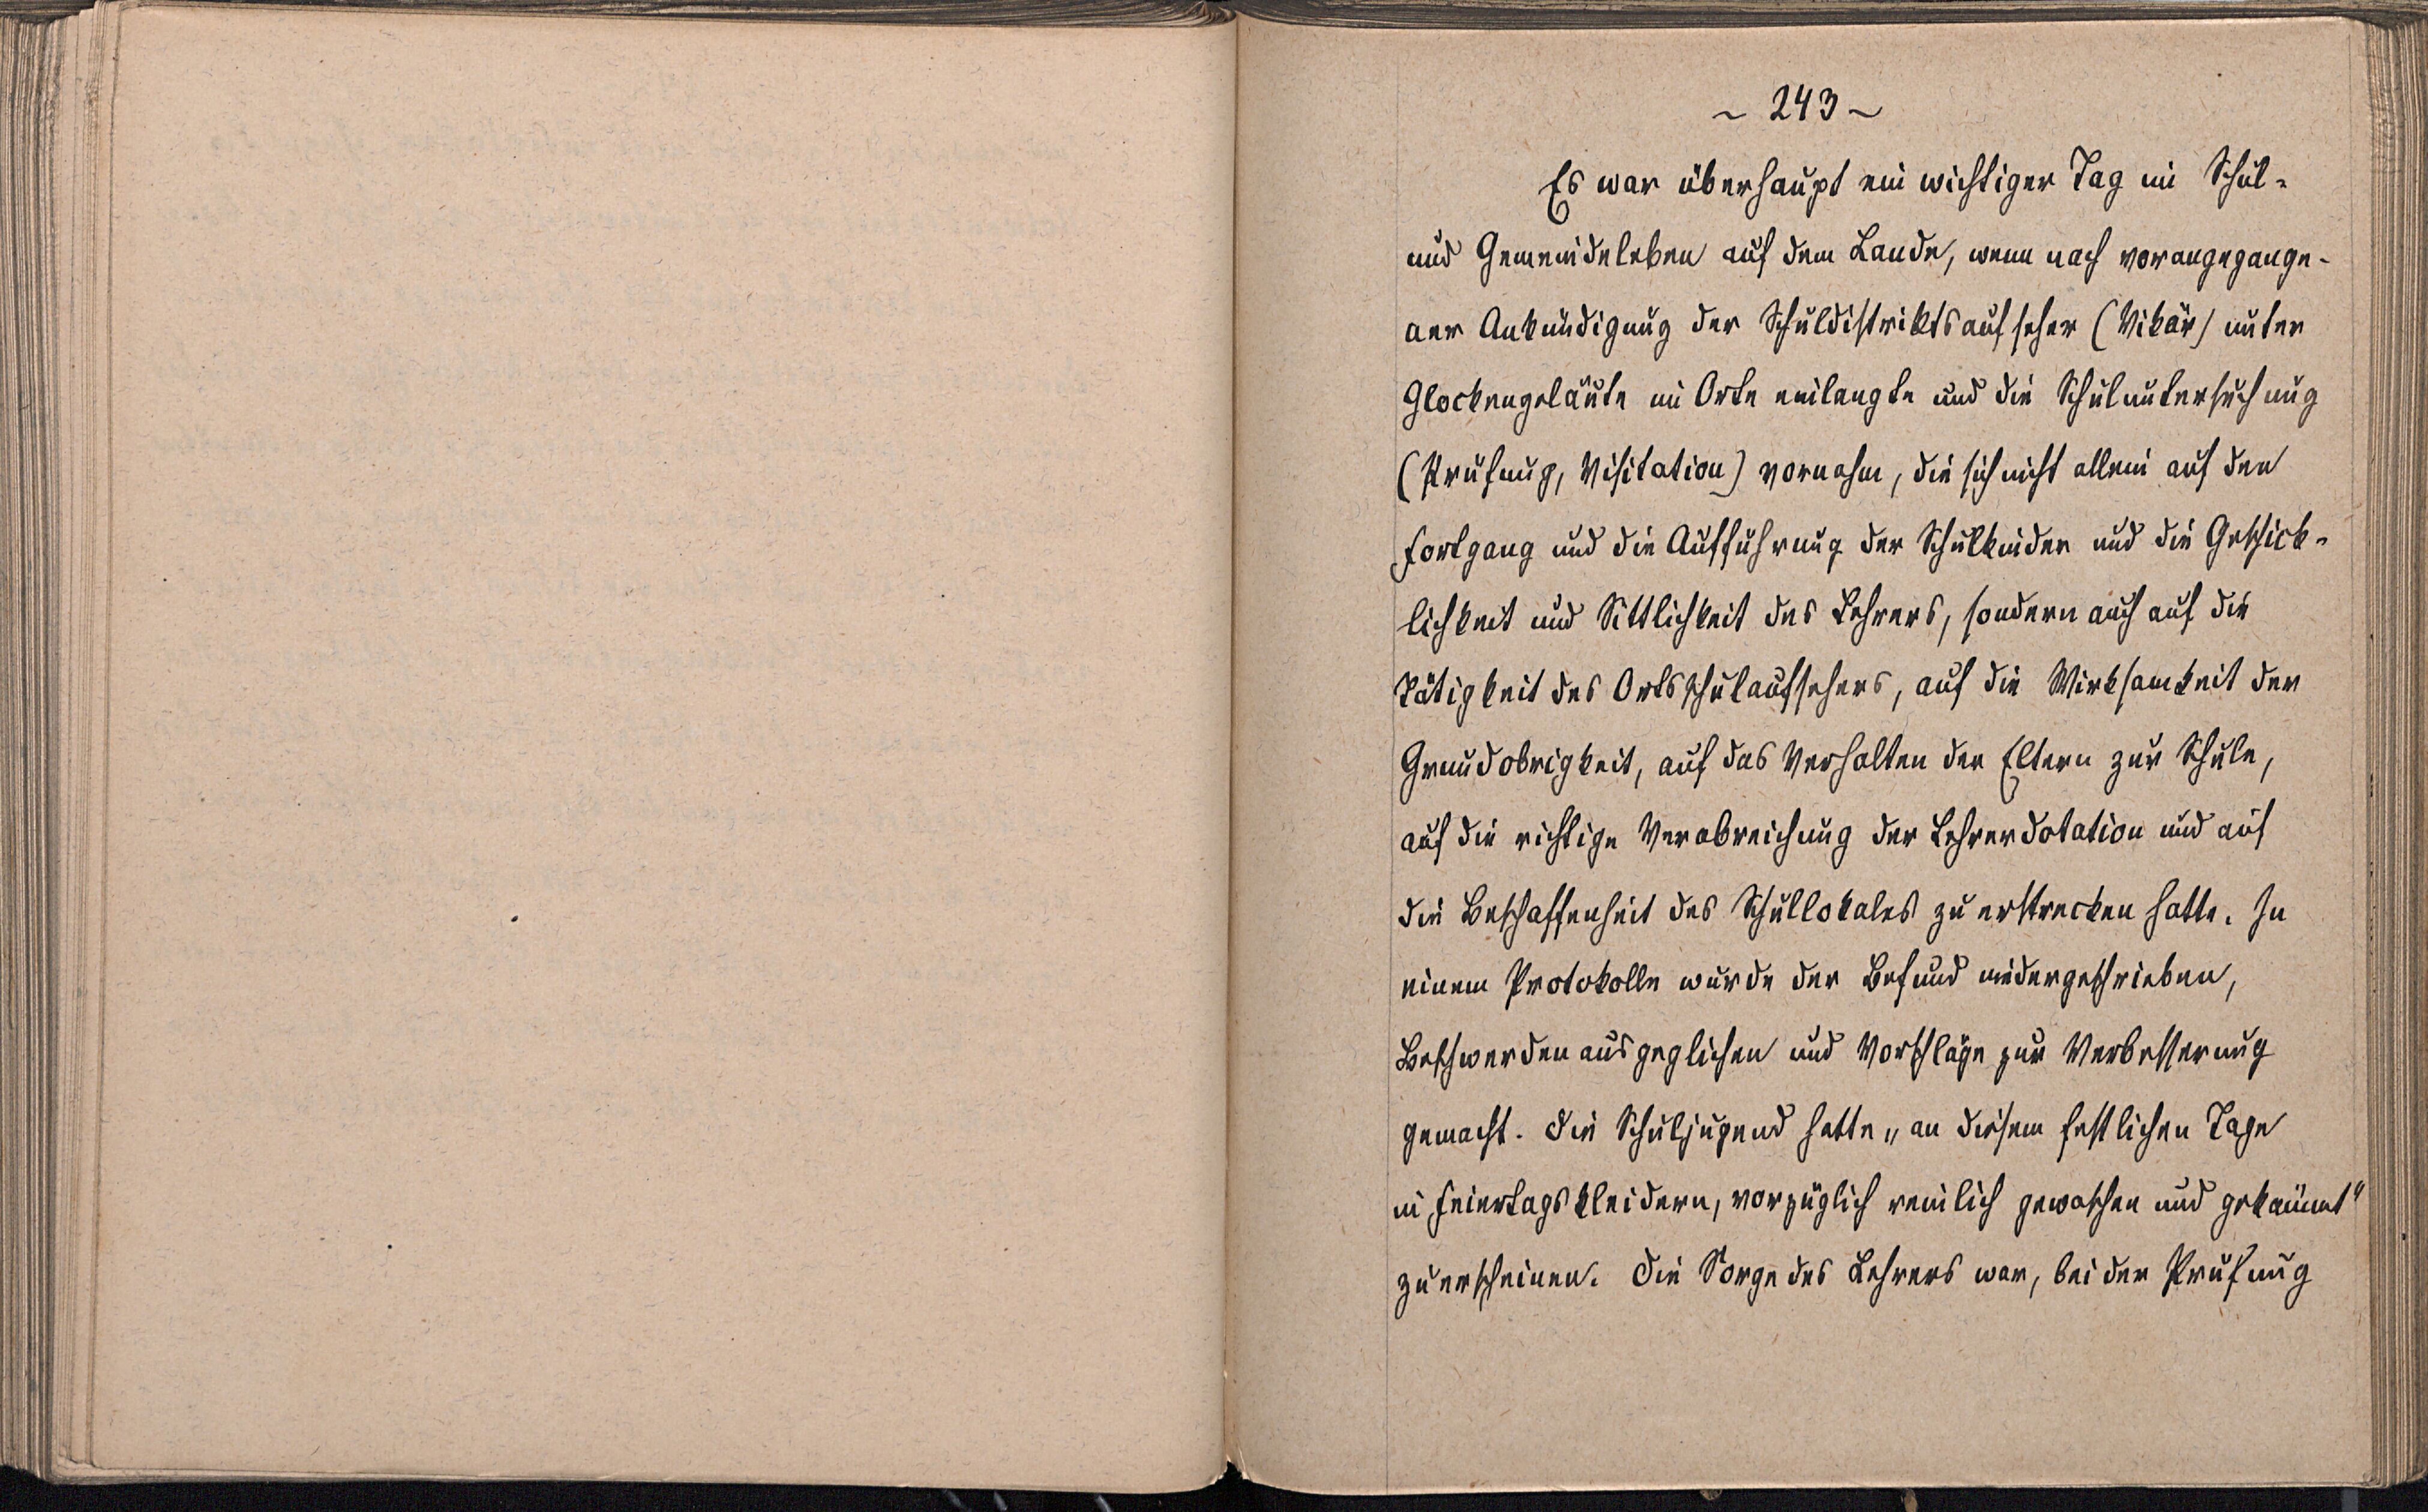 ~ 243 ~
Es war überhaupt ein wichtiger Tag im Schul-
und Gemeindeleben auf dem Lande, wenn nach vorangegange-
ner Ankündigung der Schuldistriktsaufseher (Vikär) unter
Glockengeläute im Orte einlangte und die Schuluntersuchung
(Prüfung, Visitation) vornahm, die sich nicht allein auf den
Fortgang und die Aufführung der Schulkinder und die Geschick-
lichkeit und Sittlichkeit des Lehrers, sondern auch auf die
Tätigkeit des Ortsschulaufsehers, auf die Wirksamkeit der
Grundobrigkeit, auf das Verhalten der Eltern zur Schule,
auf die richtige Verabreichung der Lehrerdotation und auf
die Beschaffenheit des Schullokales zu erstrecken hatte. In
einem Protokolle wurde der Befund niedergeschrieben,
Beschwerden ausgeglichen und Vorschläge zur Verbesserung
gemacht. Die Schuljugend hatte „an diesem festlichen Tage
in Feiertagskleidern, vorzüglich reinlich gewaschen und gekämmt"
zu erscheinen. Die Sorge des Lehrers war, bei der Prüfung